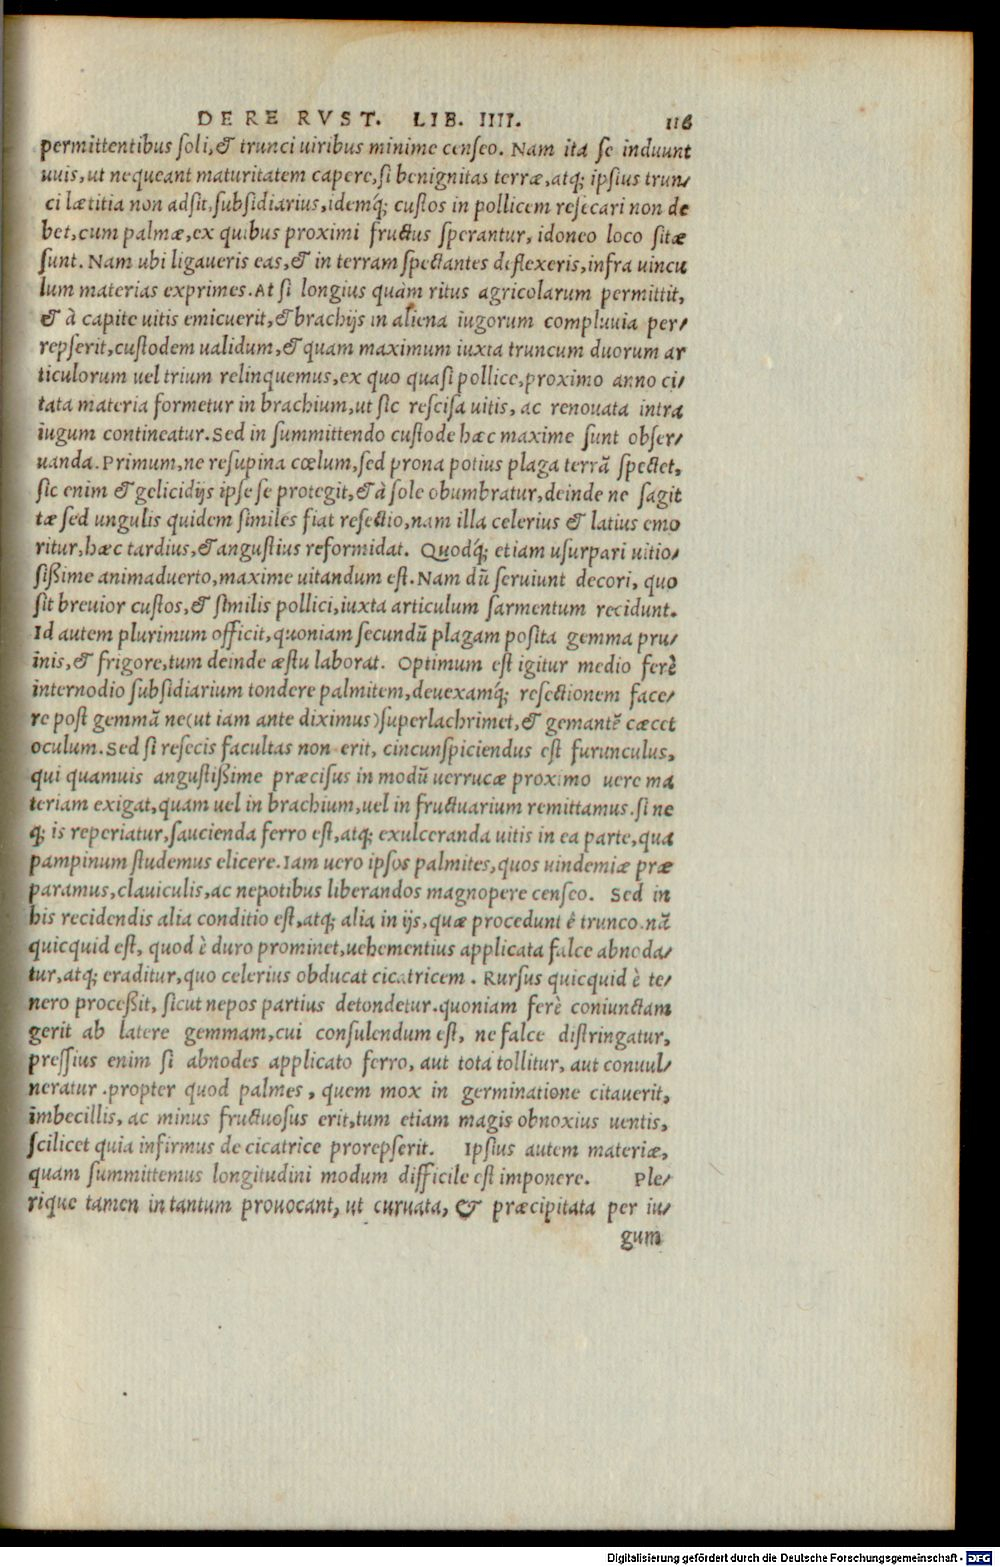 DE RE RVST. LIB. IIII. 116
permittentibus soli, & trunci uiribus minime censeo. Nam ita se induunt
uuis, ut nequeant maturitatem capere, si benignitas terræ, atq; ipsius trun-
ci lætitia non adsit, subsidiarius, idemq́; custos in pollicem resecari non de
bet, cum palmæ, ex quibus proximi fructus sperantur, idoneo loco sitæ
sunt. Nam ubi ligaueris eas, & in terram spectantes deflexeris, infra uincu
lum materias exprimes. At si longius quàm ritus agricolarum permittit,
& à capite uitis emicuerit, & brachijs in aliena iugorum compluuia per-
repserit, custodem ualidum, & quam maximum iuxta truncum duorum ar
ticulorum uel trium relinquemus, ex quo quasi pollice, proximo anno ci-
tata materia formetur in brachium, ut sic rescisa uitis, ac renouata intra
iugum contineatur. Sed in summittendo custode hæc maxime sunt obser-
uanda. Primum, ne resupina cœlum, sed prona potius plaga terrã spectet,
sic enim & gelicidijs ipse se protegit, & à sole obumbratur, deinde ne sagit
tæ sed ungulis quidem similes fiat resectio, nam illa celerius & latius emo
ritur, hæc tardius, & angustius reformidat. Quodq́; etiam usurpari uitio-
sißime animaduerto, maxime uitandum est. Nam dũ seruiunt decori, quo
sit breuior custos, & similis pollici, iuxta articulum sarmentum recidunt.
Id autem plurimum officit, quoniam secundũ plagam posita gemma pru-
inis, & frigore, tum deinde æstu laborat. Optimum est igitur medio ferè
internodio subsidiarium tondere palmitem, deuexamq́; resectionem face-
re post gemmã ne (ut iam ante diximus) superlachrimet, & gemantẽ cæcet
oculum. Sed si resecis facultas non erit, circunspiciendus est furunculus,
qui quamuis angustißime præcisus in modũ uerrucæ proximo uere ma
teriam exigat, quam uel in brachium, uel in fructuarium remittamus. si ne
q; is reperiatur, saucienda ferro est, atq; exulceranda uitis in ea parte, qua
pampinum studemus elicere. Iam uero ipsos palmites, quos uindemiæ præ
paramus, clauiculis, ac nepotibus liberandos magnopere censeo. Sed in
his recidendis alia conditio est, atq; alia in ijs, quæ procedunt è trunco. nã
quicquid est, quod è duro prominet, uehementius applicata falce abnoda-
tur, atq; eraditur, quo celerius obducat cicatricem. Rursus quicquid è te-
nero proceßit, sicut nepos partius detondetur. quoniam ferè coniunctam
gerit ab latere gemmam, cui consulendum est, ne falce distringatur,
pressius enim si abnodes applicato ferro, aut tota tollitur, aut conuul-
neratur. propter quod palmes, quem mox in germinatione citauerit,
imbecillis, ac minus fructuosus erit, tum etiam magis obnoxius uentis,
scilicet quia infirmus de cicatrice prorepserit. Ipsius autem materiæ,
quam summittemus longitudini modum difficile est imponere. Ple-
rique tamen in tantum prouocant, ut curuata, & præcipitata per iu-
gum
Digitalisierung gefördert durch die Deutsche Forschungsgemeinschaft - DFG